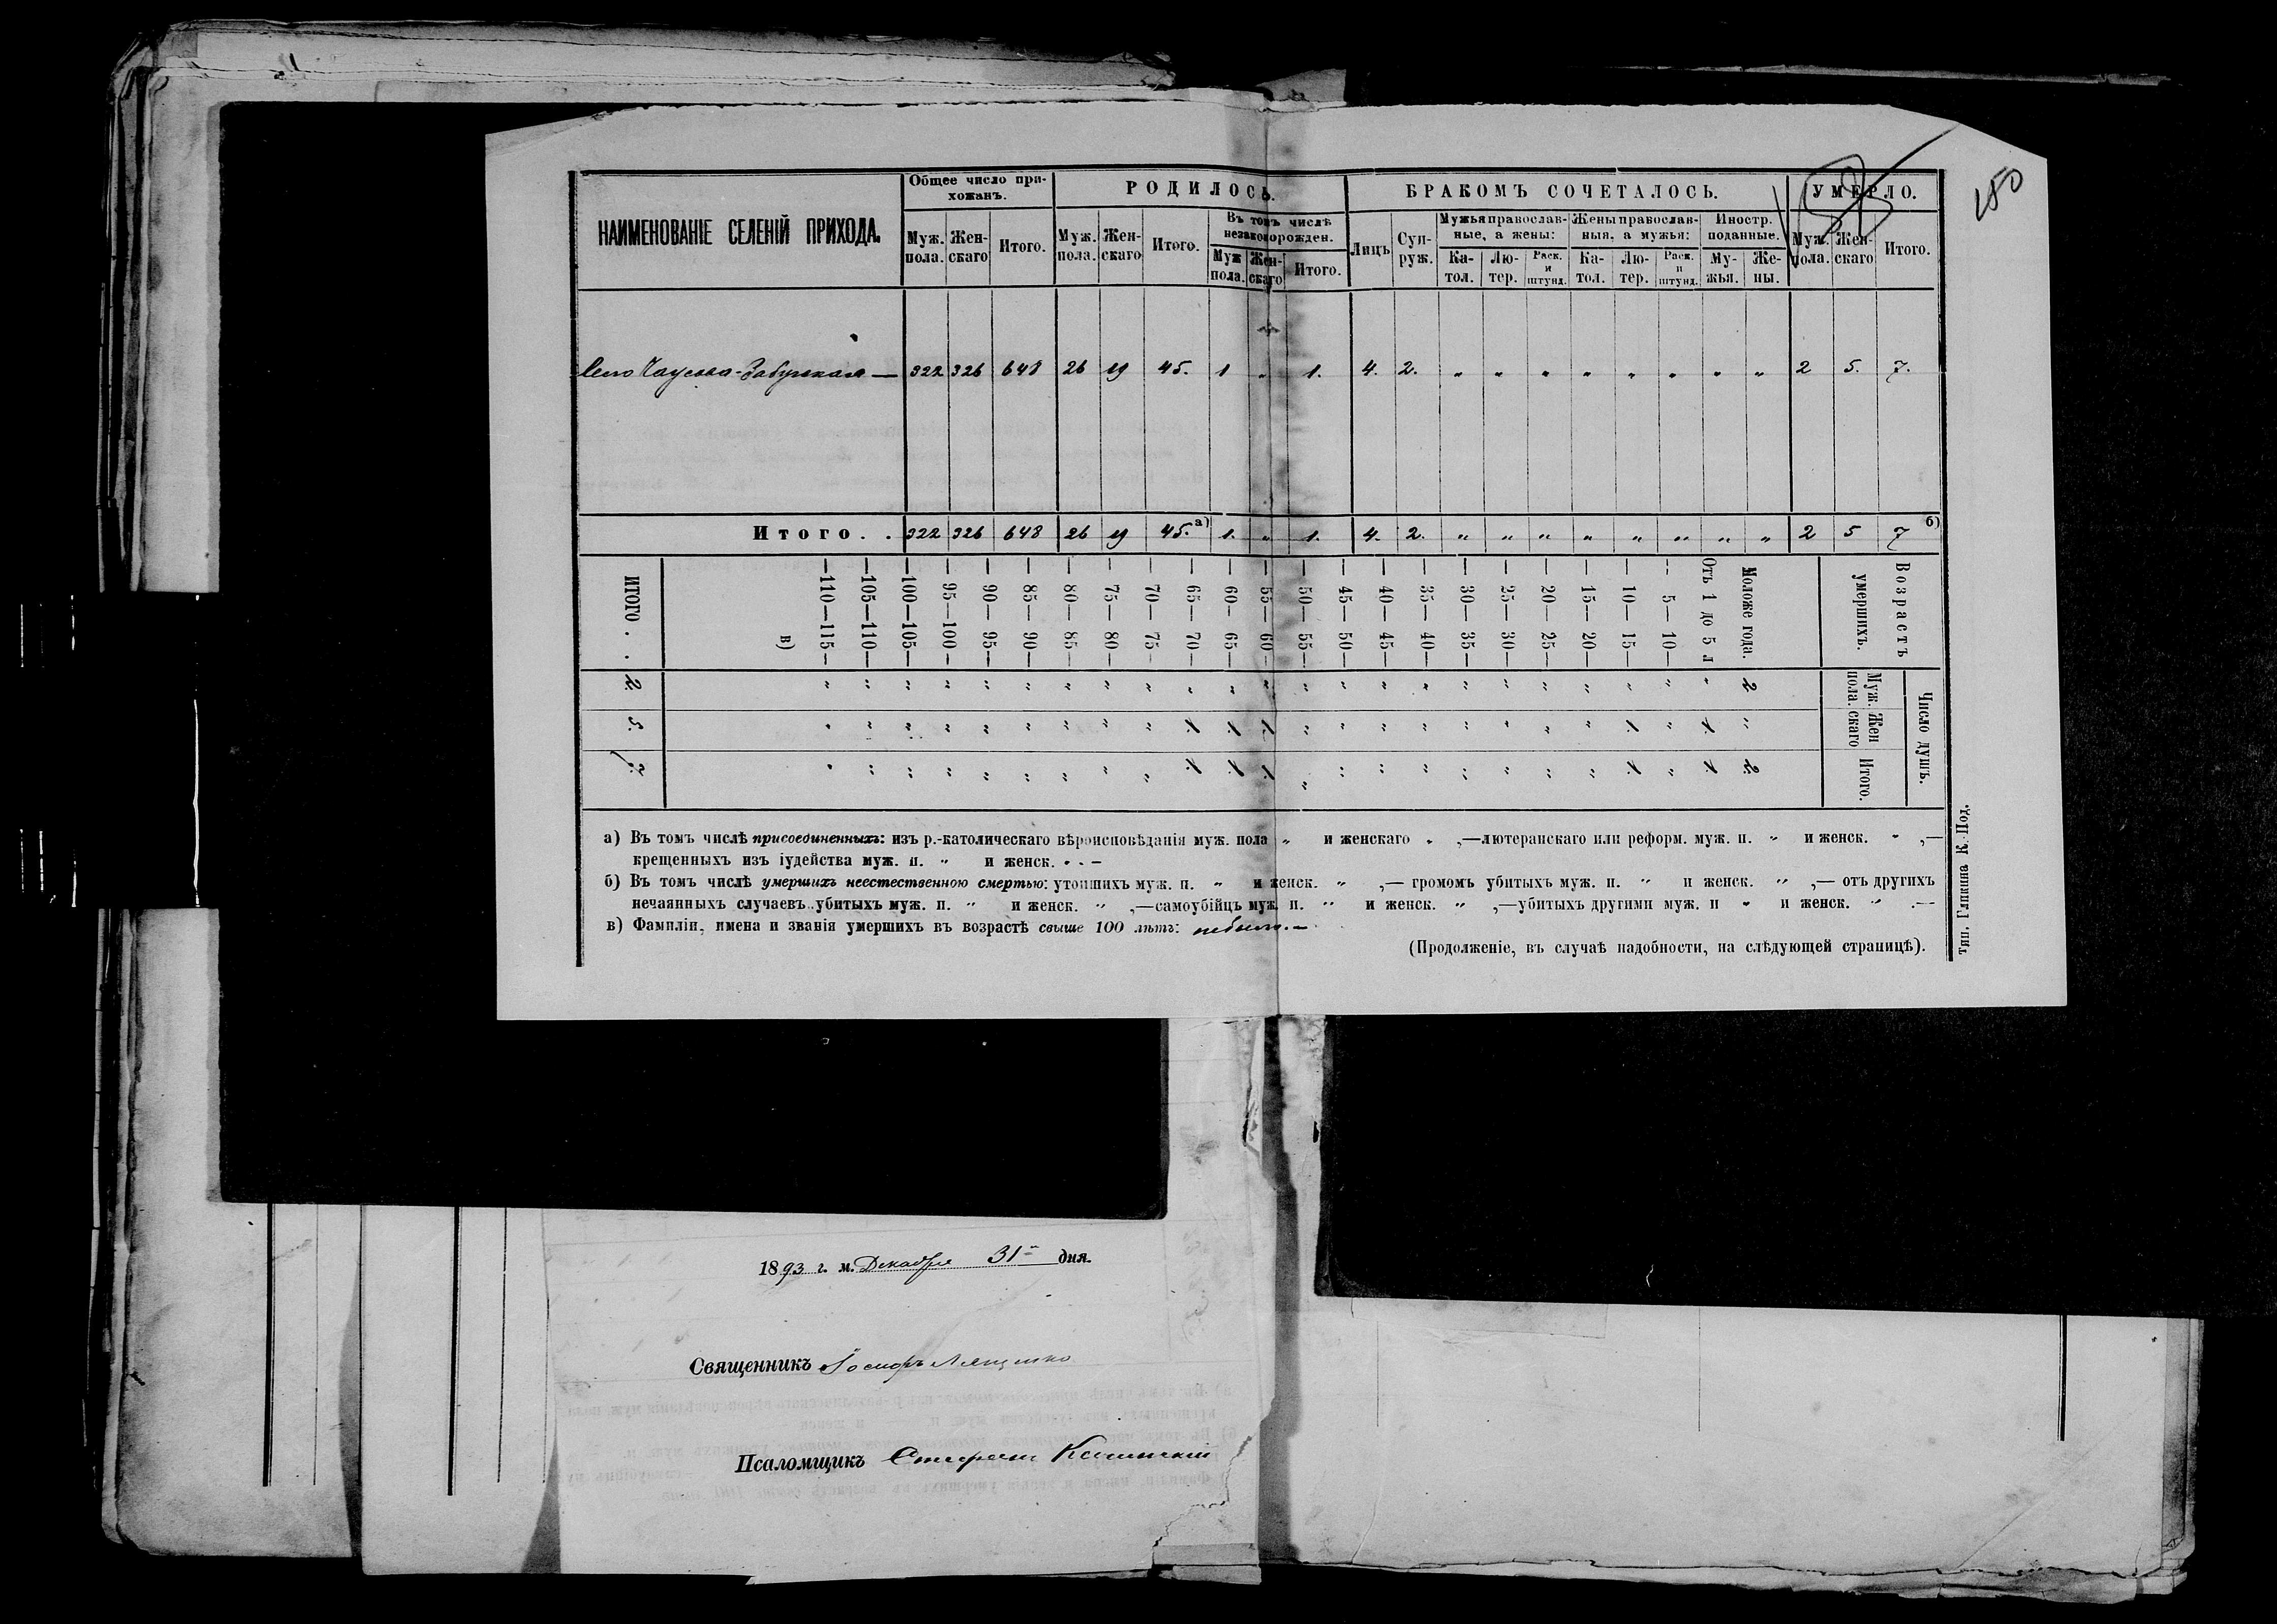 180
НАИМЕНОВАНІЕ СЕЛЕНІЙ ПРИХОДА.
Общее число при-
хожанъ.
РОДИЛОСЬ.
БРАКОМЪ СОЧЕТАЛОСЬ.
УМЕРЛО.
Муж. пола.
Жен-скаго
Итого.
Муж. пола.
Жен-скаго
Итого.
Въ томъ числѣ незаконорожден.
Муж пола.
Жен-скаго
Итого.
Лицъ
Суп-руж.
Мужья православ-ные, а жены:
Ка-тол.
Лю-тер.
Раск. и штунд.
Жены православ-ныя, а мужья:
Ка-тол.
Лю-тер.
Раск. и штунд.
Иностр. поданные.
Му-жья.
Же-ны.
Муж. пола.
Жен-скаго
Итого.
Село Чаусова-Забугская — 322 326 648 26 19 45. 1 „ 1. 4. 2. „ „ „ „ „ „ „ „ 2 5. 7.
Итого. . 322 326 648 26 19 45. а) 1. „ 1. 4. 2. „ „ „ „ „ „ „ „ 2 5 7 б)
Возрастъ умершихъ.
Число душъ.
Муж. пола.
Жен скаго
Итого.
Моложе года. 2 „ 2.
Отъ 1 до 5 л „ 1. 1.
— 5— 10— „ „ „
— 10— 15— „ 1. 1.
— 15— 20— „ „ „
— 20— 25— „ „ „
— 25— 30— „ „ „
— 30— 35— „ „ „
— 35— 40— „ „ „
— 40— 45— „ „ „
— 45— 50— „ „ „
— 50— 55— „ „ „
— 55— 60— „ 1. 1.
— 60— 65— „ 1. 1.
— 65— 70— „ 1. 1.
— 70— 75— „ „ „
— 75— 80— „ „ „
— 80— 85— „ „ „
— 85— 90— „ „ „
— 90— 95— „ „ „
— 95—100— „ „ „
—100—105— „ „ „
—105—110— „ „ „
—110—115— „ „ „
в)
ИТОГО . . 2. 5. 7.
а) Въ томъ числѣ присоединенныхъ: изъ р.-католическаго вѣроисповѣданія муж. пола „ и женскаго „ ,—лютеранскаго или реформ. муж. п. „ и женск. „ ,—
крещенныхъ изъ іудейства муж. п. „ и женск. „ . —
б) Въ томъ числѣ умершихъ неестественною смертью: утопшихъ муж. п. „ и женск. „ ,— громомъ убитыхъ муж. п. „ и женск. „ ,— отъ другихъ
нечаянныхъ случаевъ убитыхъ муж. п. „ и женск. „ ,—самоубійцъ муж. п. „ и женск. „ ,—убитыхъ другими муж. п „ и женск. „ .—
в) Фамиліи, имена и званія умершихъ въ возрастѣ свыше 100 лѣтъ: небыло.—
(Продолженіе, въ случаѣ надобности, на слѣдующей страницѣ).
Тип. Гликина К.-Под.
1893 г. м. Декабря 31 дня.
Священникъ Іосифъ Лященко
Псаломщикъ Стефанъ